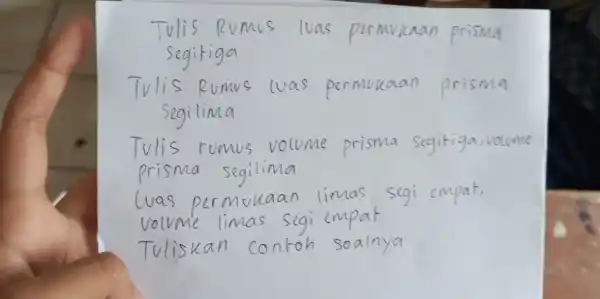 Tulis Rumus luas permukaan prisma
segitiga
Tulis Rumus luas permukaan prisma
segilima
Tulis rumus volume prisma segitiga, volume
prisma segilima
luas permukaan limas segi empat,
volume limas segi empat
Tuliskan contoh soalnya